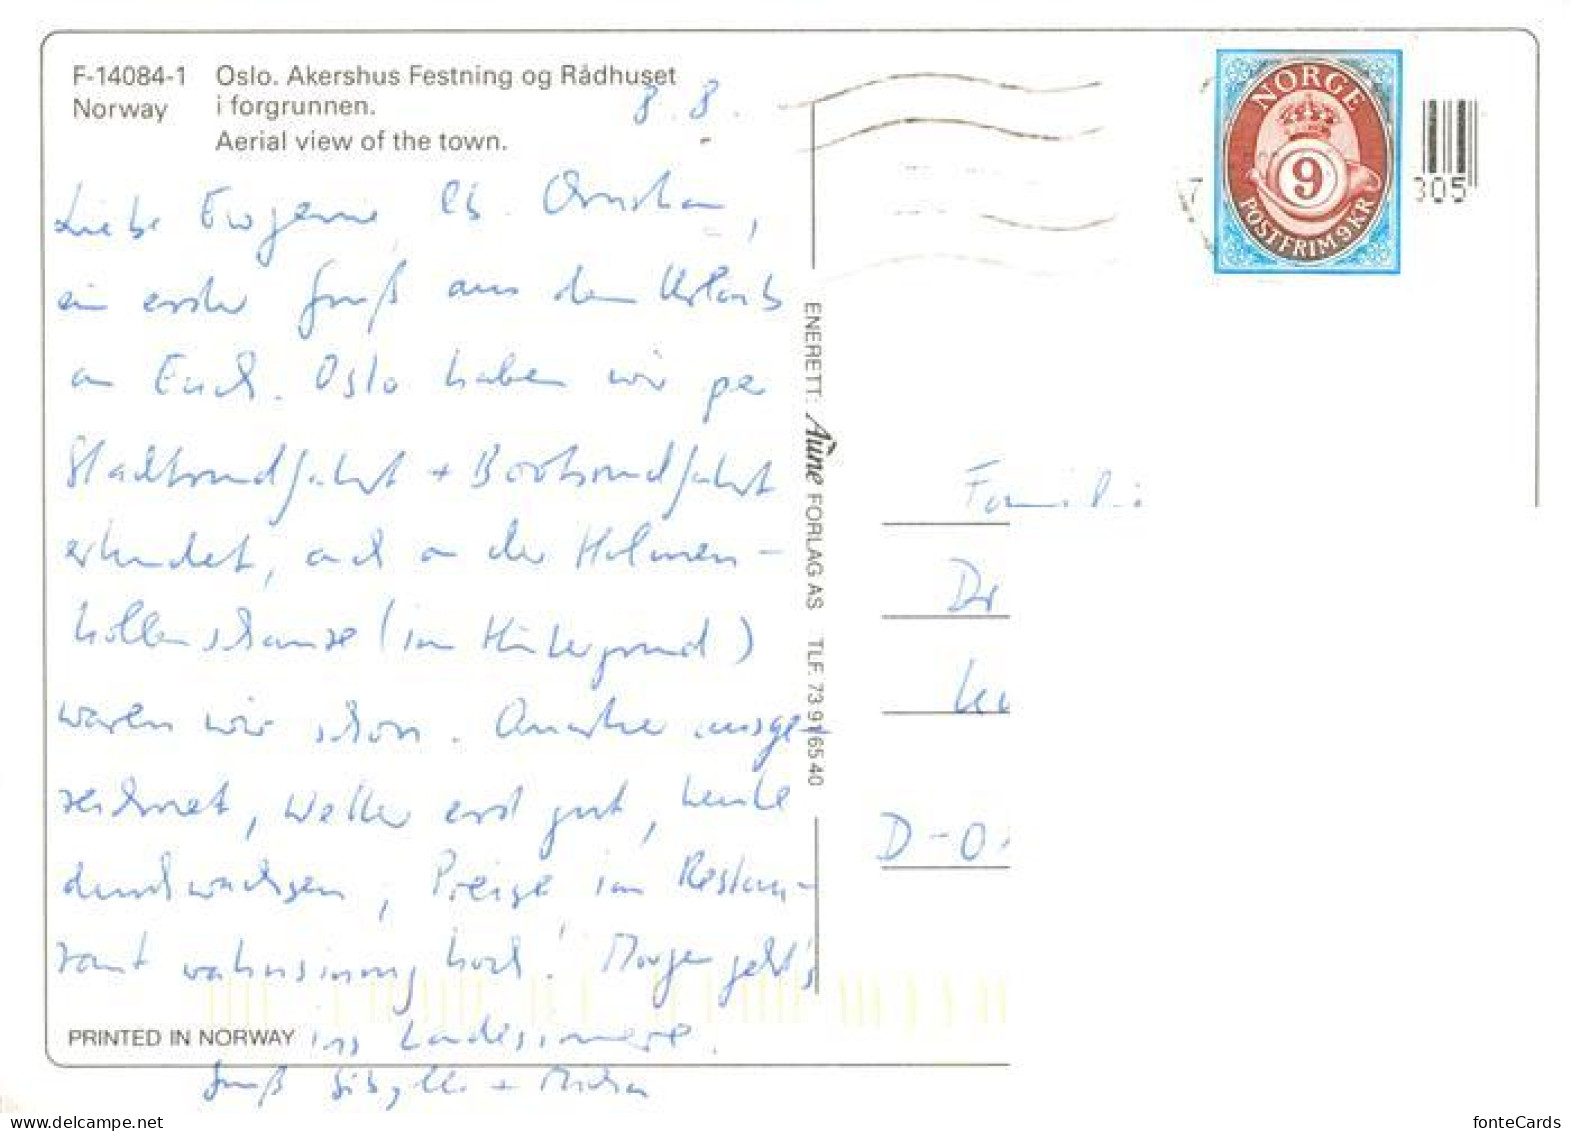 F-14084-1 Oslo. Akershus Festning og Rådhuset
Norway i forgrunnen.
Aerial view of the town.
8.8.
Liebe Eugenie, Lb.
ein erster Gruß aus dem Urlaub
an Euch. Oslo haben wir per
Stadtrundfahrt + Bootsrundfahrt
erkundet, auch an der Holmen-
kollenschanze (im Hintergrund)
waren wir schon. Quartier ausge-
zeichnet, Wetter erst gut, heute
durchwachsen, Preise im Restau-
rant wahnsinnig hoch! Morgen geht's
ins Landesinnere.
Gruß Sibylle +
PRINTED IN NORWAY
ENERETT: Aune FORLAG AS TLF. 73 91 65 40
NORGE
9
POSTFRIM 9 KR
305
Familie
Dr
D-0
fonteCards